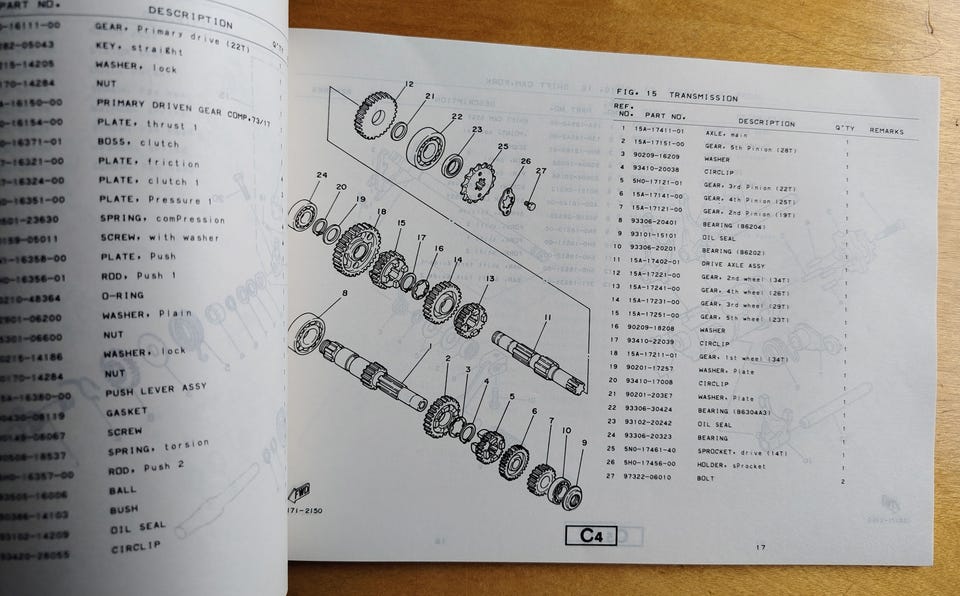 PART NO.
DESCRIPTION
Q'TY
-16111-00 GEAR, Primary drive (22T)
282-05043 KEY, straight
215-14205 WASHER, lock
170-14284 NUT
-16150-00 PRIMARY DRIVEN GEAR COMP.73/17
-16154-00 PLATE, thrust 1
-16371-01 BOSS, clutch
-16321-00 PLATE, friction
-16324-00 PLATE, clutch 1
-16351-00 PLATE, Pressure 1
501-23630 SPRING, comPression
159-05011 SCREW, with washer
-16358-00 PLATE, Push
-16356-01 ROD, Push 1
210-48364 O-RING
901-06200 WASHER, Plain
301-06600 NUT
215-14186 WASHER, lock
170-14284 NUT
-16380-00 PUSH LEVER ASSY
430-08119 GASKET
149-06067 SCREW
508-18537 SPRING, torsion
-16357-00 ROD, Push 2
505-16006 BALL
386-14103 BUSH
93102-14209 OIL SEAL
93420-26055 CIRCLIP
12
21
22
23
25
26
27
24
20
19
18
15
17
16
14
13
11
8
1
2
3
4
5
6
7
10
9
FWD
171-2150
C4
FIG. 15 TRANSMISSION
REF. NO. PART NO. DESCRIPTION Q'TY REMARKS
1 15A-17411-01 AXLE, main 1
2 15A-17151-00 GEAR, 5th Pinion (28T) 1
3 90209-16209 WASHER 1
4 93410-20038 CIRCLIP 1
5 5H0-17121-01 GEAR, 3rd Pinion (22T) 1
6 15A-17141-00 GEAR, 4th Pinion (25T) 1
7 15A-17121-00 GEAR, 2nd Pinion (19T) 1
8 93306-20401 BEARING (B6204) 1
9 93101-15101 OIL SEAL 1
10 93306-20201 BEARING (B6202) 1
11 15A-17402-01 DRIVE AXLE ASSY 1
12 15A-17221-00 GEAR, 2nd wheel (34T) 1
13 15A-17241-00 GEAR, 4th wheel (26T) 1
14 15A-17231-00 GEAR, 3rd wheel (29T) 1
15 15A-17251-00 GEAR, 5th wheel (23T) 1
16 90209-18208 WASHER 1
17 93410-22039 CIRCLIP 1
18 15A-17211-01 GEAR, 1st wheel (34T) 1
19 90201-17257 WASHER, Plate 1
20 93410-17008 CIRCLIP 1
21 90201-203E7 WASHER, Plate 1
22 93306-30424 BEARING (B6304A3) 1
23 93102-20242 OIL SEAL 1
24 93306-20323 BEARING 1
25 5N0-17461-40 SPROCKET, drive (14T) 1
26 5H0-17456-00 HOLDER, sProcket 1
27 97322-06010 BOLT 2
17